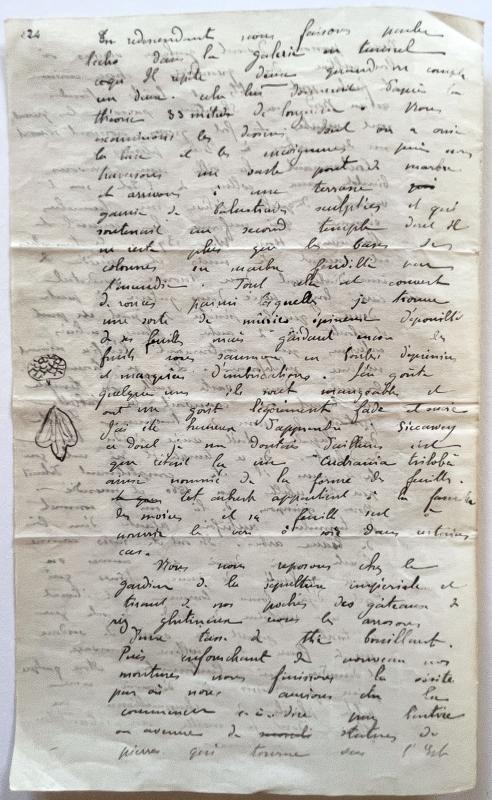 224
En redescendant nous faisons parler
l'écho dans la galerie en tunnel
Il répète deux quand on compte
un deux. cela lui donnerait d'après la
théorie 33 mètres de longueur. Nous
les dont on a orné
la et les puis nous
traversons un vaste pont de marbre
et arrivons à une terrasse
garnie de balustrades sculptées et qui
soutenait un second temple dont il
ne reste plus que les bases des
colonnes en marbre fendillé par
l'incendie. Tout cela est couvert
de ronces, parmi lesquelles je trouve
une sorte de mûrier épineux dépouillé
de ses feuilles mais gardant encore des
fruits roses saumon en boules déprimées
et marquées d'imbrications. J'en goûte
quelques uns ils sont mangeables et
ont un goût légèrement fade et sucré
J'ai été heureux d'apprendre à Siccawey
ce dont je me doutais d'ailleurs un
que c'était là un Cudrania triloba
ainsi nommé de la forme des feuilles.
Cet arbuste appartient à la famille
des morées et sa feuille sert à
nourrir le ver à soie dans certains
cas.
Nous nous reposons chez le
gardien de la sépulture impériale et
tirant de nos poches des gâteaux de
riz glutineux nous les arrosons
d'une tasse de thé bouillant.
Puis enfourchant de nouveau nos
montures nous finissons la visite
par où nous aurions dû la
commencer c.à.dire par l'entrée
ou avenue de statues de
pierres qui tourne vers l'Est